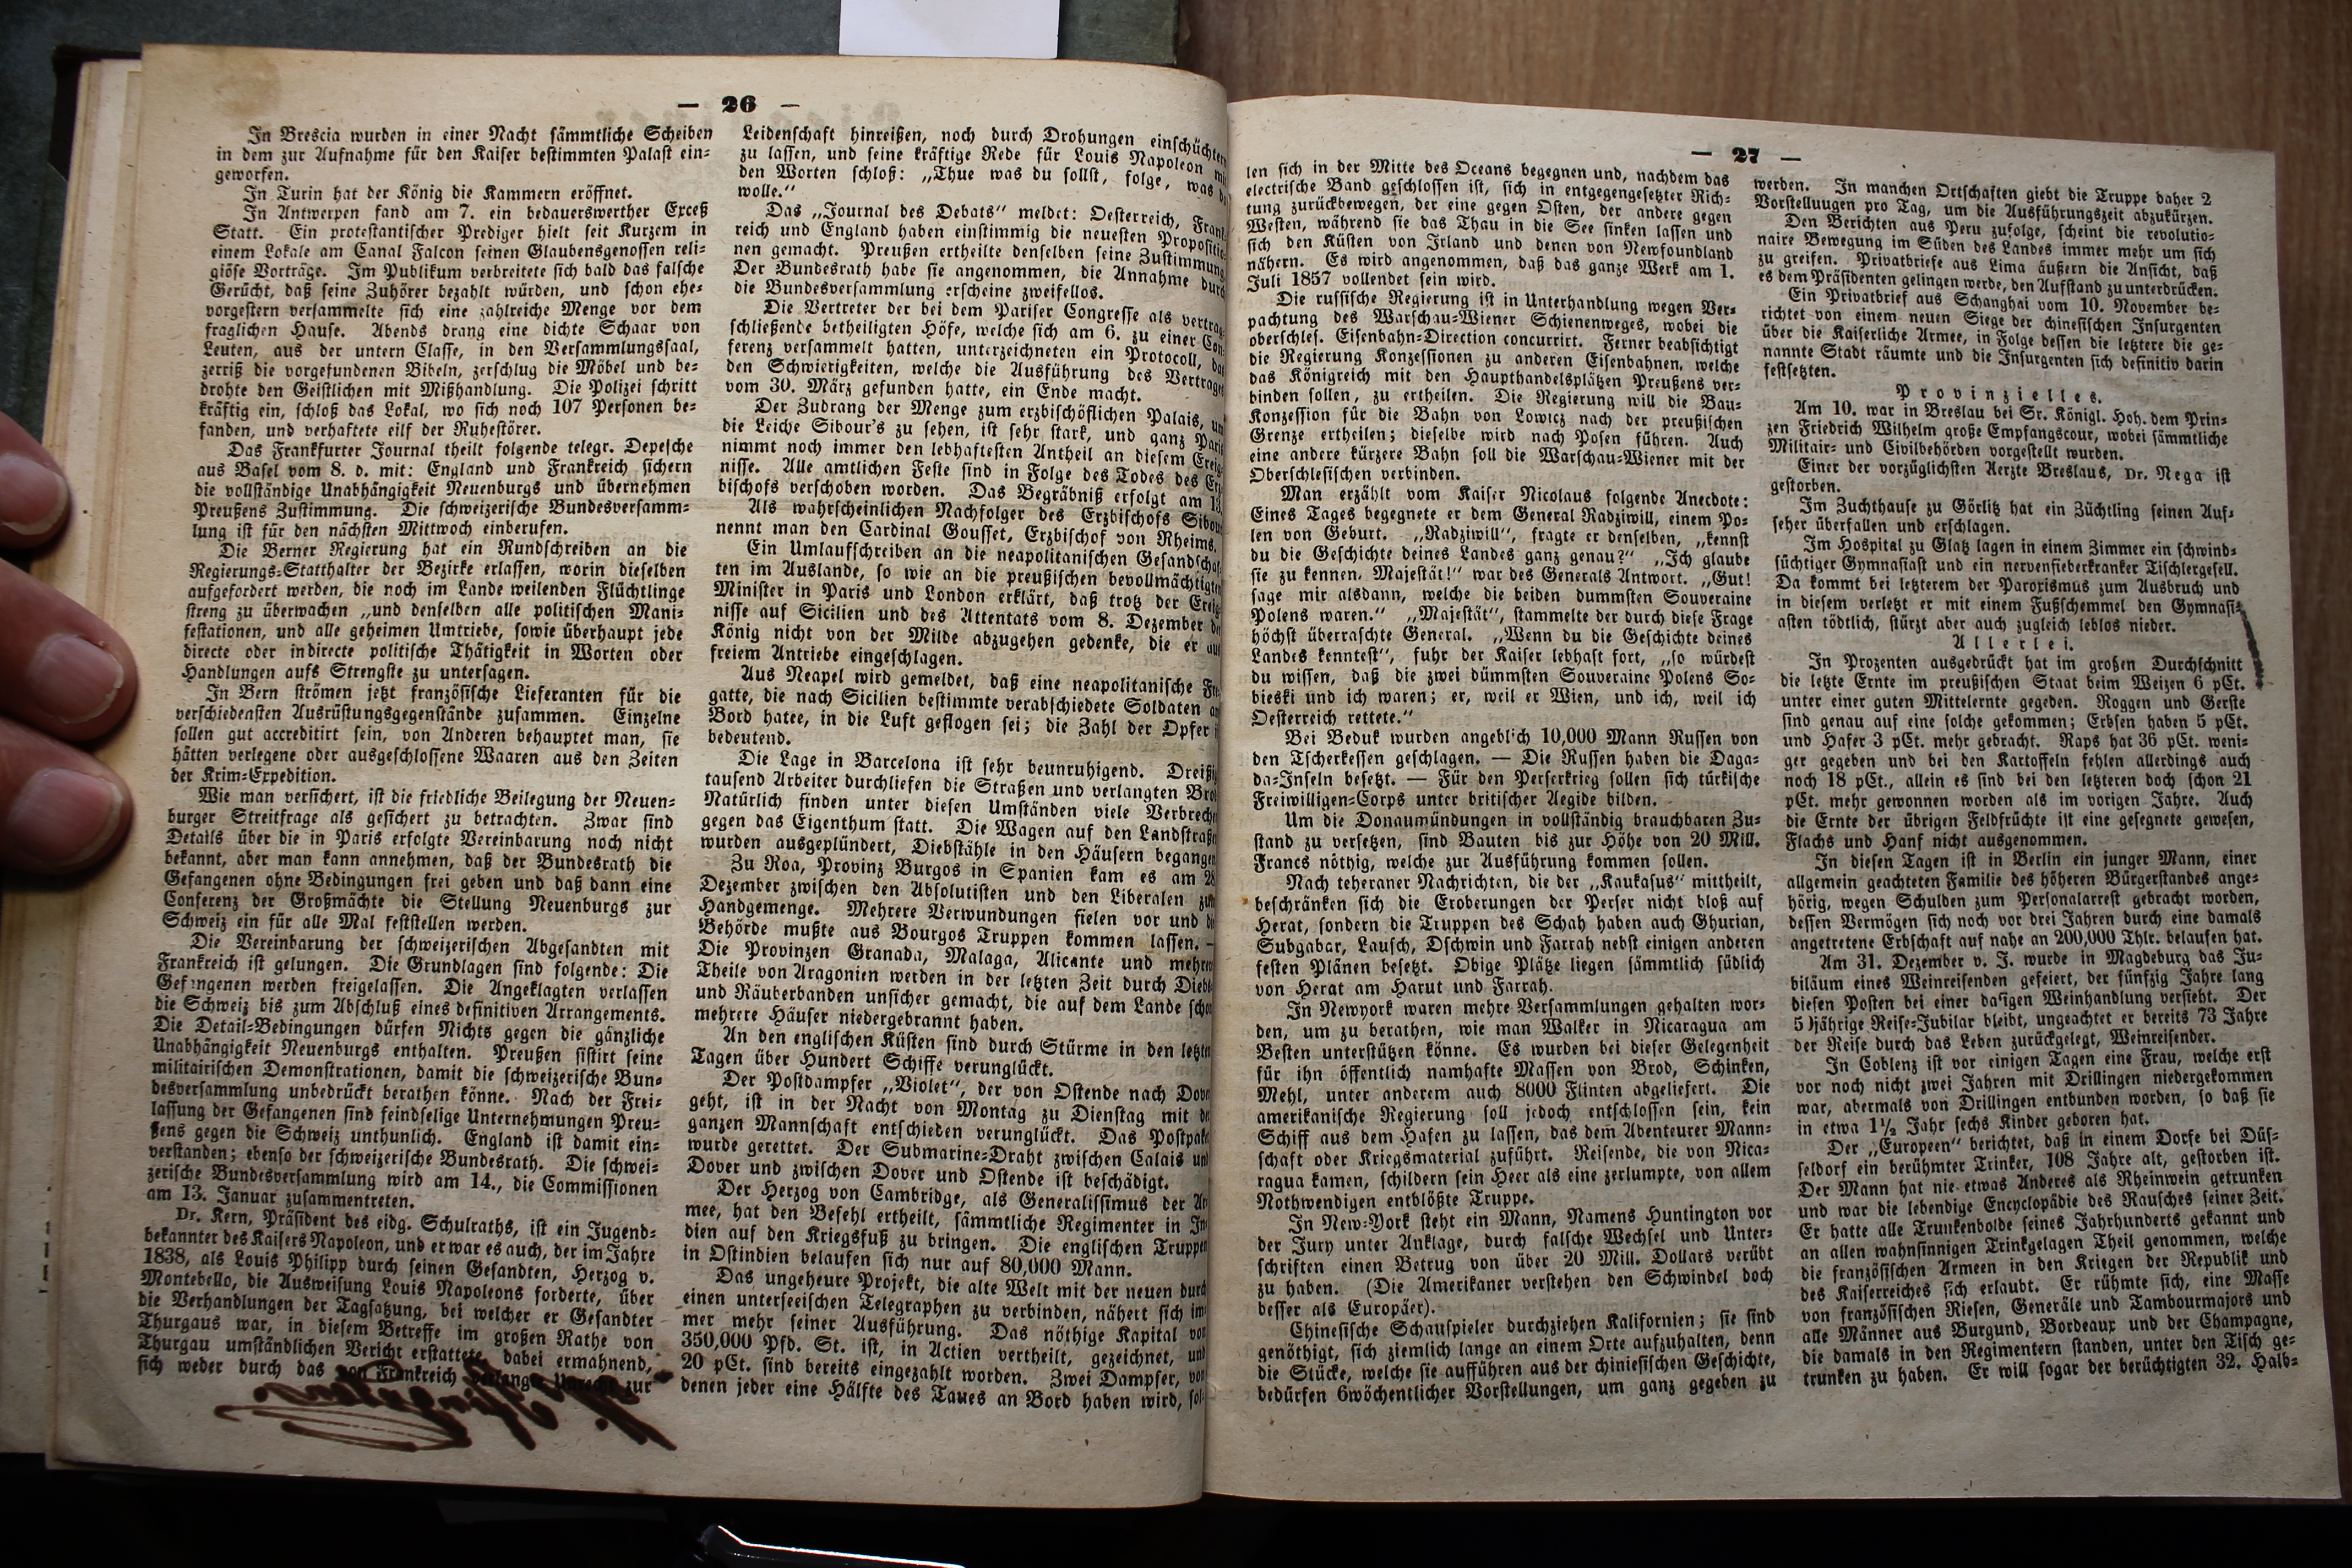 — 26 —
In Brescia wurden in einer Nacht sämmtliche Scheiben
in dem zur Aufnahme für den Kaiser bestimmten Palast ein-
geworfen.
In Turin hat der König die Kammern eröffnet.
In Antwerpen fand am 7. ein bedauerswerther Exceß
Statt. Ein protestantischer Prediger hielt seit Kurzem in
einem Lokale am Canal Falcon seinen Glaubensgenossen reli-
giöse Vorträge. Im Publikum verbreitete sich bald das falsche
Gerücht, daß seine Zuhörer bezahlt würden, und schon ehe-
vorgestern versammelte sich eine zahlreiche Menge vor dem
fraglichen Hause. Abends drang eine dichte Schaar von
Leuten, aus der untern Classe, in den Versammlungssaal,
zerriß die vorgefundenen Bibeln, zerschlug die Möbel und be-
drohte den Geistlichen mit Mißhandlung. Die Polizei schritt
kräftig ein, schloß das Lokal, wo sich noch 107 Personen be-
fanden, und verhaftete eilf der Ruhestörer.
Das Frankfurter Journal theilt folgende telegr. Depesche
aus Basel vom 8. d. mit: England und Frankreich sichern
die vollständige Unabhängigkeit Neuenburgs und übernehmen
Preußens Zustimmung. Die schweizerische Bundesversamm-
lung ist für den nächsten Mittwoch einberufen.
Die Berner Regierung hat ein Rundschreiben an die
Regierungs-Statthalter der Bezirke erlassen, worin dieselben
aufgefordert werden, die noch im Lande weilenden Flüchtlinge
streng zu überwachen „und denselben alle politischen Mani-
festationen, und alle geheimen Umtriebe, sowie überhaupt jede
directe oder indirecte politische Thätigkeit in Worten oder
Handlungen aufs Strengste zu untersagen.
In Bern strömen jetzt französische Lieferanten für die
verschiedensten Ausrüstungsgegenstände zusammen. Einzelne
sollen gut accreditirt sein, von Anderen behauptet man, sie
hätten verlegene oder ausgeschlossene Waaren aus den Zeiten
der Krim-Expedition.
Wie man versichert, ist die friedliche Beilegung der Neuen-
burger Streitfrage als gesichert zu betrachten. Zwar sind
Details über die in Paris erfolgte Vereinbarung noch nicht
bekannt, aber man kann annehmen, daß der Bundesrath die
Gefangenen ohne Bedingungen frei geben und daß dann eine
Conferenz der Großmächte die Stellung Neuenburgs zur
Schweiz ein für alle Mal feststellen werden.
Die Vereinbarung der schweizerischen Abgesandten mit
Frankreich ist gelungen. Die Grundlagen sind folgende: Die
Gefangenen werden freigelassen. Die Angeklagten verlassen
die Schweiz bis zum Abschluß eines definitiven Arrangements.
Die Detail-Bedingungen dürfen Nichts gegen die gänzliche
Unabhängigkeit Neuenburgs enthalten. Preußen sistirt seine
militairischen Demonstrationen, damit die schweizerische Bun-
desversammlung unbedrückt berathen könne. Nach der Frei-
lassung der Gefangenen sind feindselige Unternehmungen Preu-
ßens gegen die Schweiz unthunlich. England ist damit ein-
verstanden; ebenso der schweizerische Bundesrath. Die schwei-
zerische Bundesversammlung wird am 14., die Commissionen
am 13. Januar zusammentreten.
Dr. Kern, Präsident des eidg. Schulraths, ist ein Jugend-
bekannter des Kaisers Napoleon, und er war es auch, der im Jahre
1838, als Louis Philipp durch seinen Gesandten, Herzog v.
Montebello, die Ausweisung Louis Napoleons forderte, über
die Verhandlungen der Tagsatzung, bei welcher er Gesandter
Thurgaus war, in diesem Betreffe im großen Rathe von
Thurgau umständlichen Bericht erstattete, dabei ermahnend,
sich weder durch das von Frankreich verlangte Unrecht zur
Leidenschaft hinreißen, noch durch Drohungen einschüchtern
zu lassen, und seine kräftige Rede für Louis Napoleon mit
den Worten schloß: „Thue was du sollst, folge, was da
wolle.“
Das „Journal des Debats“ meldet: Oesterreich, Frank-
reich und England haben einstimmig die neuesten Propositio-
nen gemacht. Preußen ertheilte denselben seine Zustimmung.
Der Bundesrath habe sie angenommen, die Annahme durch
die Bundesversammlung erscheine zweifellos.
Die Vertreter der bei dem Pariser Congresse als vertrag-
schließende betheiligten Höfe, welche sich am 6. zu einer Con-
ferenz versammelt hatten, unterzeichneten ein Protocoll, das
den Schwierigkeiten, welche die Ausführung des Vertrages
vom 30. März gefunden hatte, ein Ende macht.
Der Zudrang der Menge zum erzbischöflichen Palais, um
die Leiche Sibour's zu sehen, ist sehr stark, und ganz Paris
nimmt noch immer den lebhaftesten Antheil an diesem Ereig-
nisse. Alle amtlichen Feste sind in Folge des Todes des Erz-
bischofs verschoben worden. Das Begräbniß erfolgt am 13.
Als wahrscheinlichen Nachfolger des Erzbischofs Sibour
nennt man den Cardinal Gousset, Erzbischof von Rheims.
Ein Umlaufschreiben an die neapolitanischen Gesandtschaf-
ten im Auslande, so wie an die preußischen bevollmächtigten
Minister in Paris und London erklärt, daß trotz der Ereig-
nisse auf Sicilien und des Attentats vom 8. Dezember der
König nicht von der Milde abzugehen gedenke, die er aus
freiem Antriebe eingeschlagen.
Aus Neapel wird gemeldet, daß eine neapolitanische Fre-
gatte, die nach Sicilien bestimmte verabschiedete Soldaten an
Bord hatee, in die Luft geflogen sei; die Zahl der Opfer ist
bedeutend.
Die Lage in Barcelona ist sehr beunruhigend. Dreißig
tausend Arbeiter durchliefen die Straßen und verlangten Brot.
Natürlich finden unter diesen Umständen viele Verbrechen
gegen das Eigenthum statt. Die Wagen auf den Landstraßen
wurden ausgeplündert, Diebstähle in den Häusern begangen.
Zu Roa, Provinz Burgos in Spanien kam es am 28
Dezember zwischen den Absolutisten und den Liberalen zum
Handgemenge. Mehrere Verwundungen fielen vor und die
Behörde mußte aus Bourgos Truppen kommen lassen. —
Die Provinzen Granada, Malaga, Alicante und mehrere
Theile von Aragonien werden in der letzten Zeit durch Diebs-
und Räuberbanden unsicher gemacht, die auf dem Lande schon
mehrere Häuser niedergebrannt haben.
An den englischen Küsten sind durch Stürme in den letzten
Tagen über Hundert Schiffe verunglückt.
Der Postdampfer „Violet“, der von Ostende nach Dover
geht, ist in der Nacht von Montag zu Dienstag mit der
ganzen Mannschaft entschieden verunglückt. Das Postpaket
wurde gerettet. Der Submarine-Draht zwischen Calais und
Dover und zwischen Dover und Ostende ist beschädigt.
Der Herzog von Cambridge, als Generalissimus der Ar-
mee, hat den Befehl ertheilt, sämmtliche Regimenter in In-
dien auf den Kriegsfuß zu bringen. Die englischen Truppen
in Ostindien belaufen sich nur auf 80,000 Mann.
Das ungeheure Projekt, die alte Welt mit der neuen durch
einen unterseeischen Telegraphen zu verbinden, nähert sich im-
mer mehr seiner Ausführung. Das nöthige Kapital von
350,000 Pfd. St. ist, in Actien vertheilt, gezeichnet, und
20 pCt. sind bereits eingezahlt worden. Zwei Dampfer, von
denen jeder eine Hälfte des Taues an Bord haben wird, sol-
— 27 —
len sich in der Mitte des Oceans begegnen und, nachdem das
electrische Band geschlossen ist, sich in entgegengesetzter Rich-
tung zurückbewegen, der eine gegen Osten, der andere gegen
Westen, während sie das Thau in die See sinken lassen und
sich den Küsten von Irland und denen von Newfoundland
nähern. Es wird angenommen, daß das ganze Werk am 1.
Juli 1857 vollendet sein wird.
Die russische Regierung ist in Unterhandlung wegen Ver-
pachtung des Warschau-Wiener Schienenweges, wobei die
oberschles. Eisenbahn-Direction concurrirt. Ferner beabsichtigt
die Regierung Konzessionen zu anderen Eisenbahnen, welche
das Königreich mit den Haupthandelsplätzen Preußens ver-
binden sollen, zu ertheilen. Die Regierung will die Bau-
Konzession für die Bahn von Lowicz nach der preußischen
Grenze ertheilen; dieselbe wird nach Posen führen. Auch
eine andere kürzere Bahn soll die Warschau-Wiener mit der
Oberschlesischen verbinden.
Man erzählt vom Kaiser Nicolaus folgende Anecdote:
Eines Tages begegnete er dem General Radziwill, einem Po-
len von Geburt. „Radziwill“, fragte er denselben, „kennst
du die Geschichte deines Landes ganz genau?“ „Ich glaube
sie zu kennen, Majestät!“ war des Generals Antwort. „Gut!
sage mir alsdann, welche die beiden dummsten Souveraine
Polens waren.“ „Majestät“, stammelte der durch diese Frage
höchst überraschte General. „Wenn du die Geschichte deines
Landes kenntest“, fuhr der Kaiser lebhaft fort, „so würdest
du wissen, daß die zwei dümmsten Souveraine Polens So-
bieski und ich waren; er, weil er Wien, und ich, weil ich
Oesterreich rettete.“
Bei Beduk wurden angeblich 10,000 Mann Russen von
den Tscherkessen geschlagen. — Die Russen haben die Daga-
da-Inseln besetzt. — Für den Perserkrieg sollen sich türkische
Freiwilligen-Corps unter britischer Aegide bilden.
Um die Donaumündungen in vollständig brauchbaren Zu-
stand zu versetzen, sind Bauten bis zur Höhe von 20 Mill.
Francs nöthig, welche zur Ausführung kommen sollen.
Nach teheraner Nachrichten, die der „Kaukasus“ mittheilt,
beschränken sich die Eroberungen der Perser nicht bloß auf
Herat, sondern die Truppen des Schah haben auch Ghurian,
Subgabar, Lausch, Dschwin und Farrah nebst einigen anderen
festen Plänen besetzt. Obige Plätze liegen sämmtlich südlich
von Herat am Harut und Farrah.
In Newyork waren mehre Versammlungen gehalten wor-
den, um zu berathen, wie man Walker in Nicaragua am
Besten unterstützen könne. Es wurden bei dieser Gelegenheit
für ihn öffentlich namhafte Massen von Brod, Schinken,
Mehl, unter anderem auch 8000 Flinten abgeliefert. Die
amerikanische Regierung soll jedoch entschlossen sein, kein
Schiff aus dem Hafen zu lassen, das dem Abenteurer Mann-
schaft oder Kriegsmaterial zuführt. Reisende, die von Nica-
ragua kamen, schildern sein Heer als eine zerlumpte, von allem
Nothwendigen entblößte Truppe.
In New-York steht ein Mann, Namens Huntington vor
der Jury unter Anklage, durch falsche Wechsel und Unter-
schriften einen Betrug von über 20 Mill. Dollars verübt
zu haben. (Die Amerikaner verstehen den Schwindel doch
besser als Europäer).
Chinesische Schauspieler durchziehen Kalifornien; sie sind
genöthigt, sich ziemlich lange an einem Orte aufzuhalten, denn
die Stücke, welche sie aufführen aus der chiniesischen Geschichte,
bedürfen 6wöchentlicher Vorstellungen, um ganz gegeben zu
werden. In manchen Ortschaften giebt die Truppe daher 2
Vorstelluugen pro Tag, um die Ausführungszeit abzukürzen.
Den Berichten aus Peru zufolge, scheint die revolutio-
naire Bewegung im Süden des Landes immer mehr um sich
zu greifen. Privatbriefe aus Lima äußern die Ansicht, daß
es dem Präsidenten gelingen werde, den Aufstand zu unterdrücken.
Ein Privatbrief aus Schanghai vom 10. November be-
richtet von einem neuen Siege der chinesischen Insurgenten
über die Kaiserliche Armee, in Folge dessen die letztere die ge-
nannte Stadt räumte und die Insurgenten sich definitiv darin
festsetzten.
Provinzielles.
Am 10. war in Breslau bei Sr. Königl. Hoh. dem Prin-
zen Friedrich Wilhelm große Empfangscour, wobei sämmtliche
Militair- und Civilbehörden vorgestellt wurden.
Einer der vorzüglichsten Aerzte Breslaus, Dr. Nega ist
gestorben.
Im Zuchthause zu Görlitz hat ein Züchtling seinen Auf-
seher überfallen und erschlagen.
Im Hospital zu Glatz lagen in einem Zimmer ein schwind-
süchtiger Gymnasiast und ein nervenfieberkranker Tischlergesell.
Da kommt bei letzterem der Paroxismus zum Ausbruch und
in diesem verletzt er mit einem Fußschemmel den Gymnasi-
asten tödtlich, stürzt aber auch zugleich leblos nieder.
Allerlei.
In Prozenten ausgedrückt hat im großen Durchschnitt
die letzte Ernte im preußischen Staat beim Weizen 6 pCt.
unter einer guten Mittelernte gegeden. Roggen und Gerste
sind genau auf eine solche gekommen; Erbsen haben 5 pCt.
und Hafer 3 pCt. mehr gebracht. Raps hat 36 pCt. weni-
ger gegeben und bei den Kartoffeln fehlen allerdings auch
noch 18 pCt., allein es sind bei den letzteren doch schon 21
pCt. mehr gewonnen worden als im vorigen Jahre. Auch
die Ernte der übrigen Feldfrüchte ist eine gesegnete gewesen,
Flachs und Hanf nicht ausgenommen.
In diesen Tagen ist in Berlin ein junger Mann, einer
allgemein geachteten Familie des höheren Bürgerstandes ange-
hörig, wegen Schulden zum Personalarrest gebracht worden,
dessen Vermögen sich noch vor drei Jahren durch eine damals
angetretene Erbschaft auf nahe an 200,000 Thlr. belaufen hat.
Am 31. Dezember v. J. wurde in Magdeburg das Ju-
biläum eines Weinreisenden gefeiert, der fünfzig Jahre lang
diesen Posten bei einer dasigen Weinhandlung versieht. Der
50jährige Reise-Jubilar bleibt, ungeachtet er bereits 73 Jahre
der Reise durch das Leben zurückgelegt, Weinreisender.
In Coblenz ist vor einigen Tagen eine Frau, welche erst
vor noch nicht zwei Jahren mit Drillingen niedergekommen
war, abermals von Drillingen entbunden worden, so daß sie
in etwa 1½ Jahr sechs Kinder geboren hat.
Der „Europeen“ berichtet, daß in einem Dorfe bei Düs-
seldorf ein berühmter Trinker, 108 Jahre alt, gestorben ist.
Der Mann hat nie etwas Anderes als Rheinwein getrunken
und war die lebendige Encyclopädie des Rausches seiner Zeit.
Er hatte alle Trunkenbolde seines Jahrhunderts gekannt und
an allen wahnsinnigen Trinkgelagen Theil genommen, welche
die französischen Armeen in den Kriegen der Republik und
des Kaiserreiches sich erlaubt. Er rühmte sich, eine Masse
von französischen Riesen, Generäle und Tambourmajors und
alle Männer aus Burgund, Bordeaux und der Champagne,
die damals in den Regimentern standen, unter den Tisch ge-
trunken zu haben. Er will sogar der berüchtigten 32. Halb-